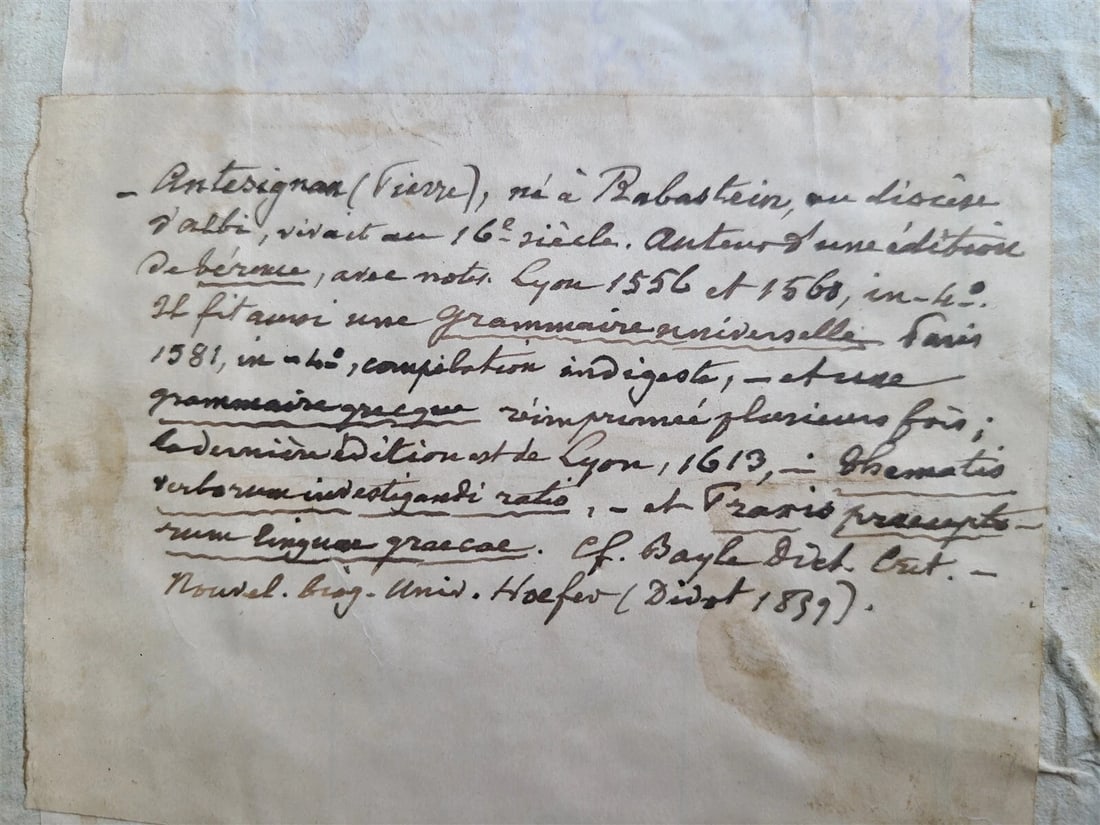 - Antesignan (Pierre), né à Rabastein, au diocèse
d'albi, vivait au 16e siècle. Auteur d'une édition
de térence, avec notes. Lyon 1556 et 1560, in-4o.
Il fit aussi une grammaire universelle Paris
1581, in-4o, compilation indigeste, - et une
grammaire grecque réimprimée plusieurs fois;
la dernière édition est de Lyon, 1613, - thematis
verborum investigandi ratio, - et Praxis praecepto-
rum linguae graecae. Cf. Bayle Dict. Crit. -
Nouvel. biog. Univ. Hoefer (Didot 1859).